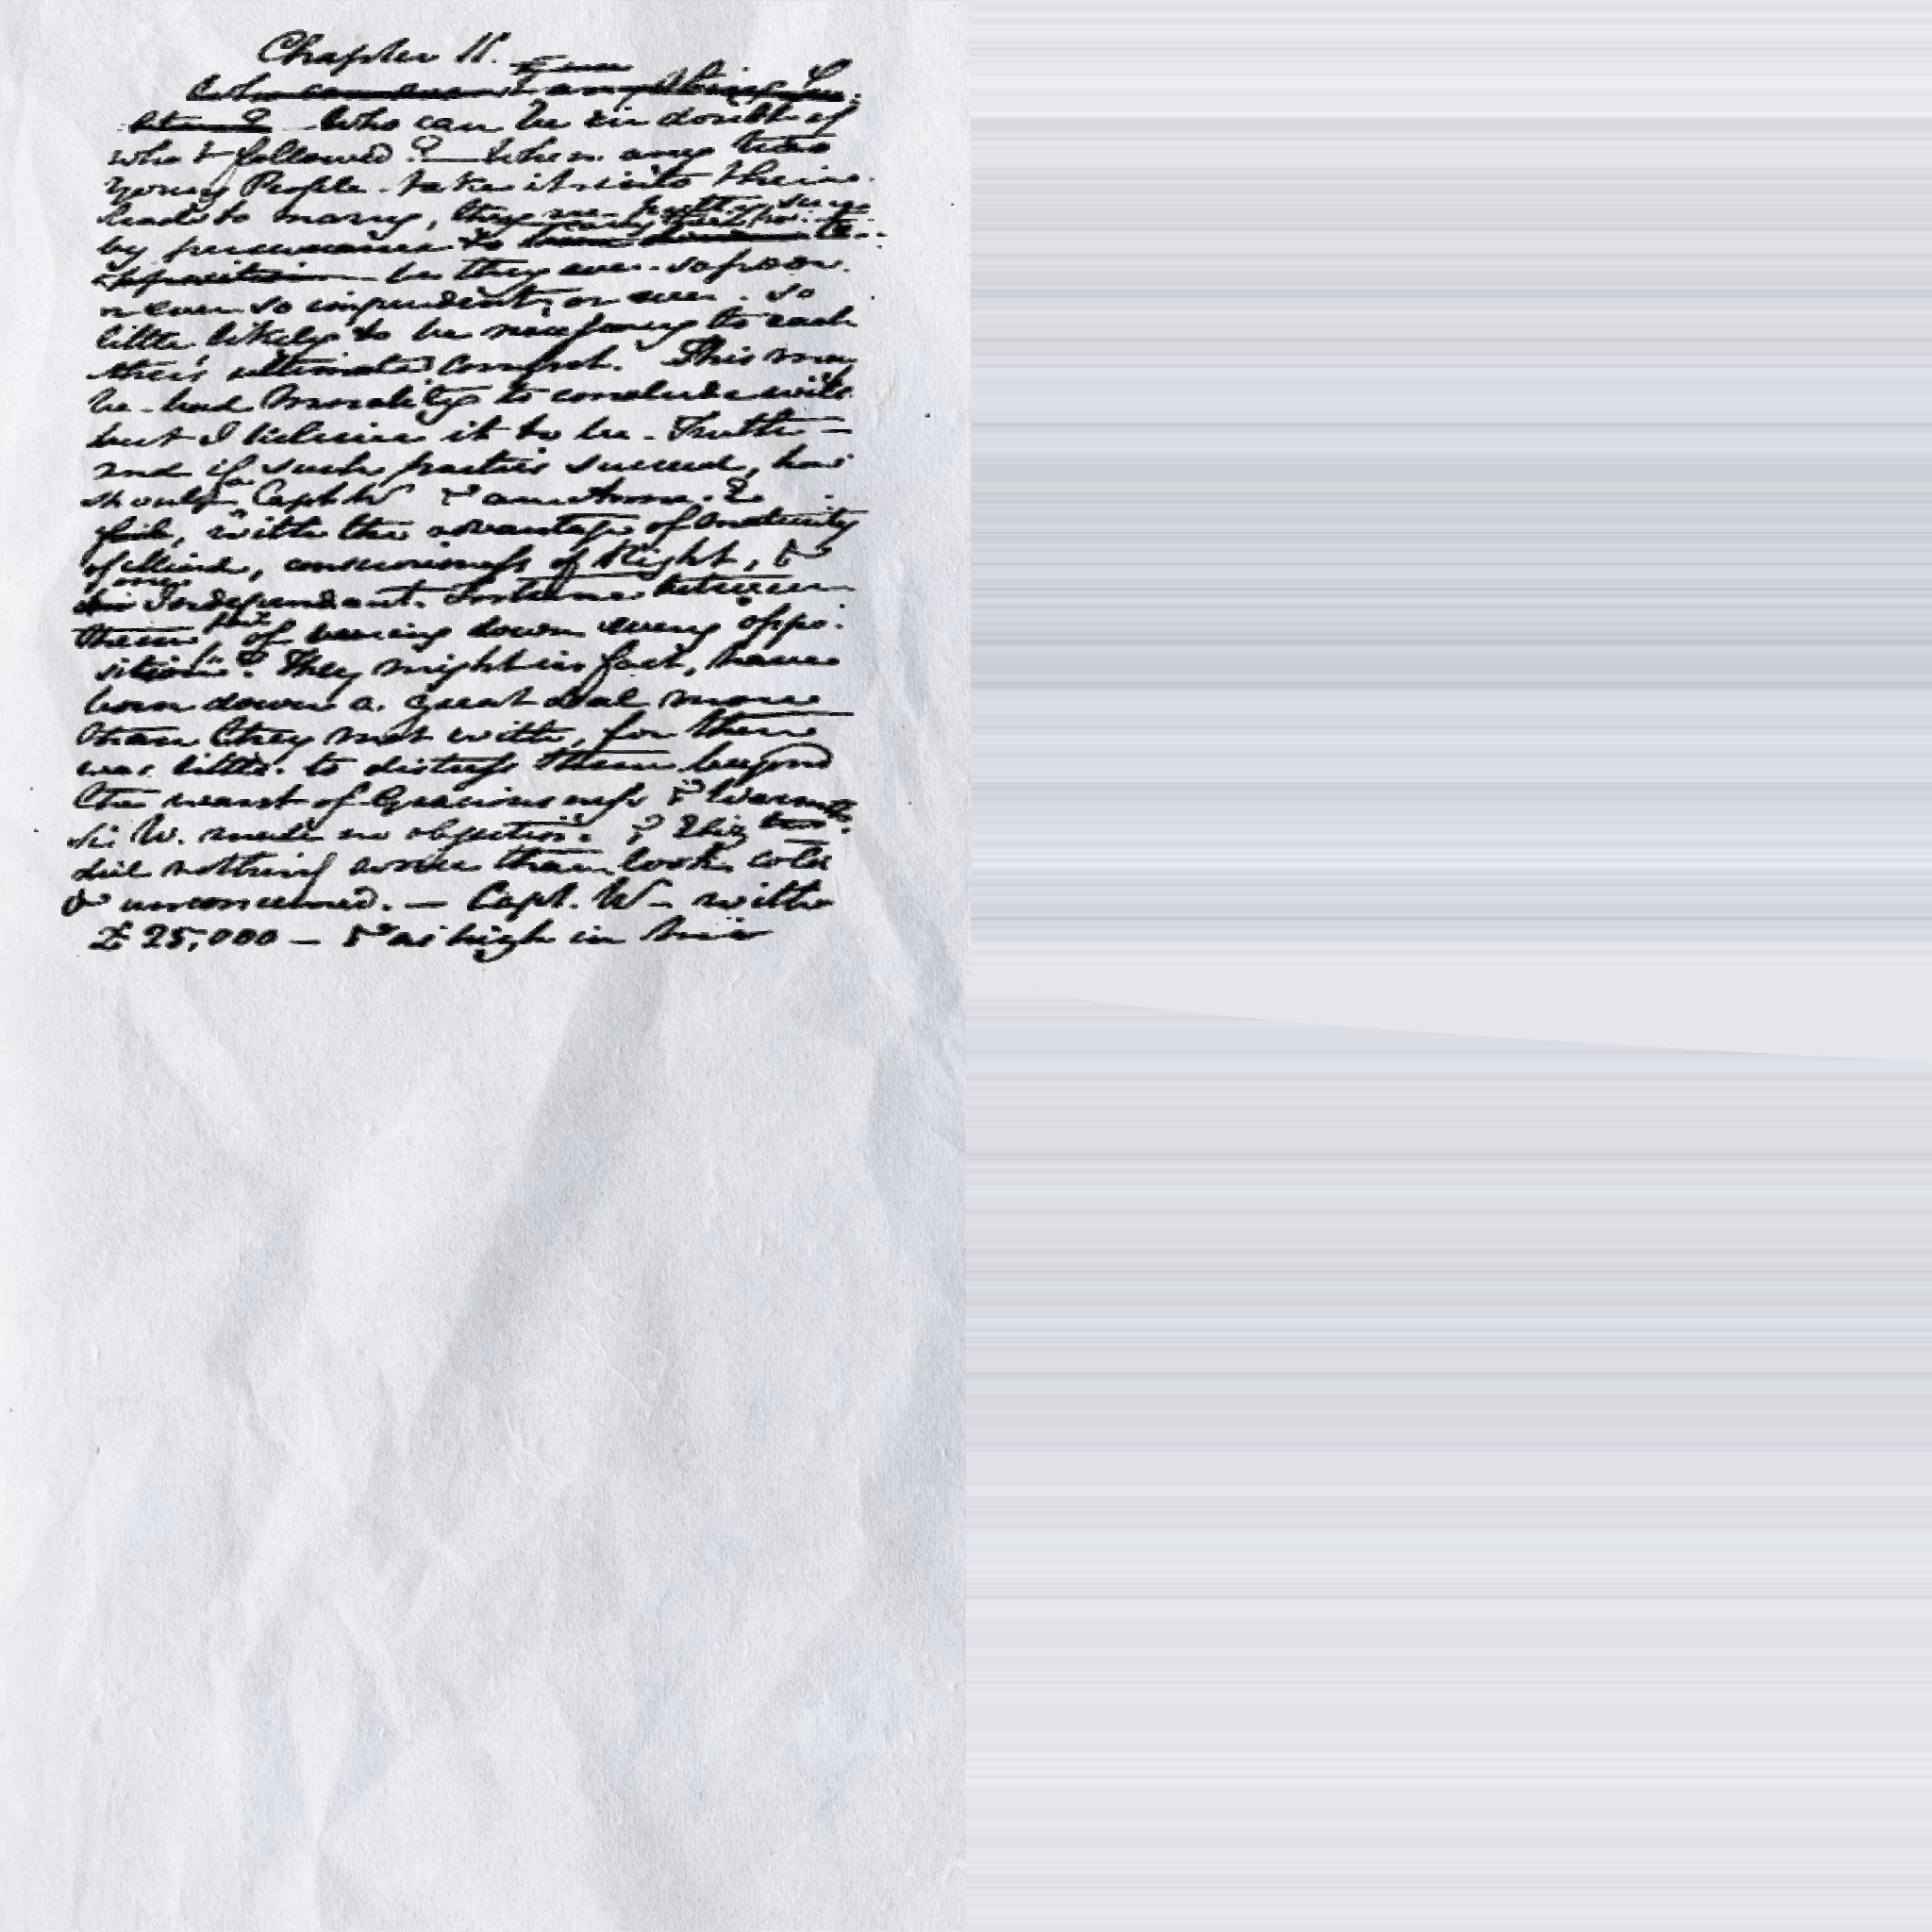 Chapter 11.
Who can be in doubt of
what followed? — When any two
Young People take it into their
heads to marry, they are pretty sure
by perseverance to carry their point
be they ever so poor,
or ever so imprudent, or ever so
little likely to be necessary to each
other's ultimate comfort. This may
be bad Morality to conclude with,
but I believe it to be Truth —
and if such parties succeed, how
should Capt W & an Anne E
fail, with the advantage of maturity
of Mind, consciousness of Right, &
one Independant Fortune between
them of bearing down every oppo-
sition? They might in fact, have
born down a great deal more
than they met with, for there
was little to distress them beyond
the want of Graciousness & Warmth.
Sir W. made no objection. & Eliz:th
did nothing worse than look cold
& unconcerned. — Capt. W— with
£25,000 — & as high in his